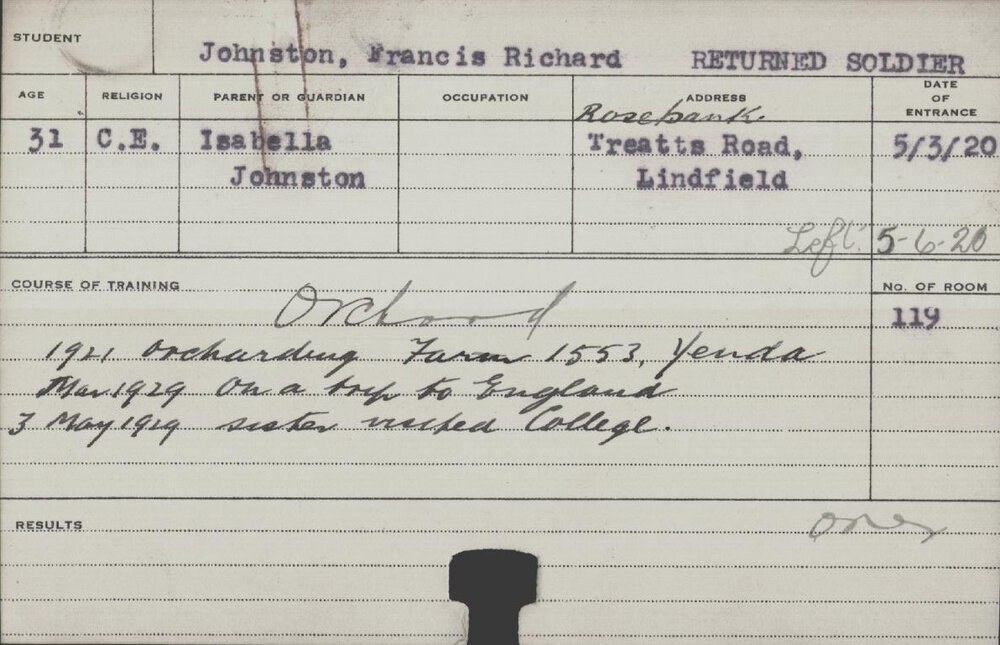 STUDENT
Johnston, Francis Richard RETURNED SOLDIER
AGE RELIGION PARENT OR GUARDIAN OCCUPATION ADDRESS DATE OF ENTRANCE
Rosebank
31 C.E. Isabella Treatts Road, 5/3/20
Johnston Lindfield
Left. 5-6-20
COURSE OF TRAINING No. OF ROOM
Orchard 119
1921 Orcharding Farm 1553, Yenda
Mar 1929 On a trip to England
3 May 1929 sister visited College.
RESULTS